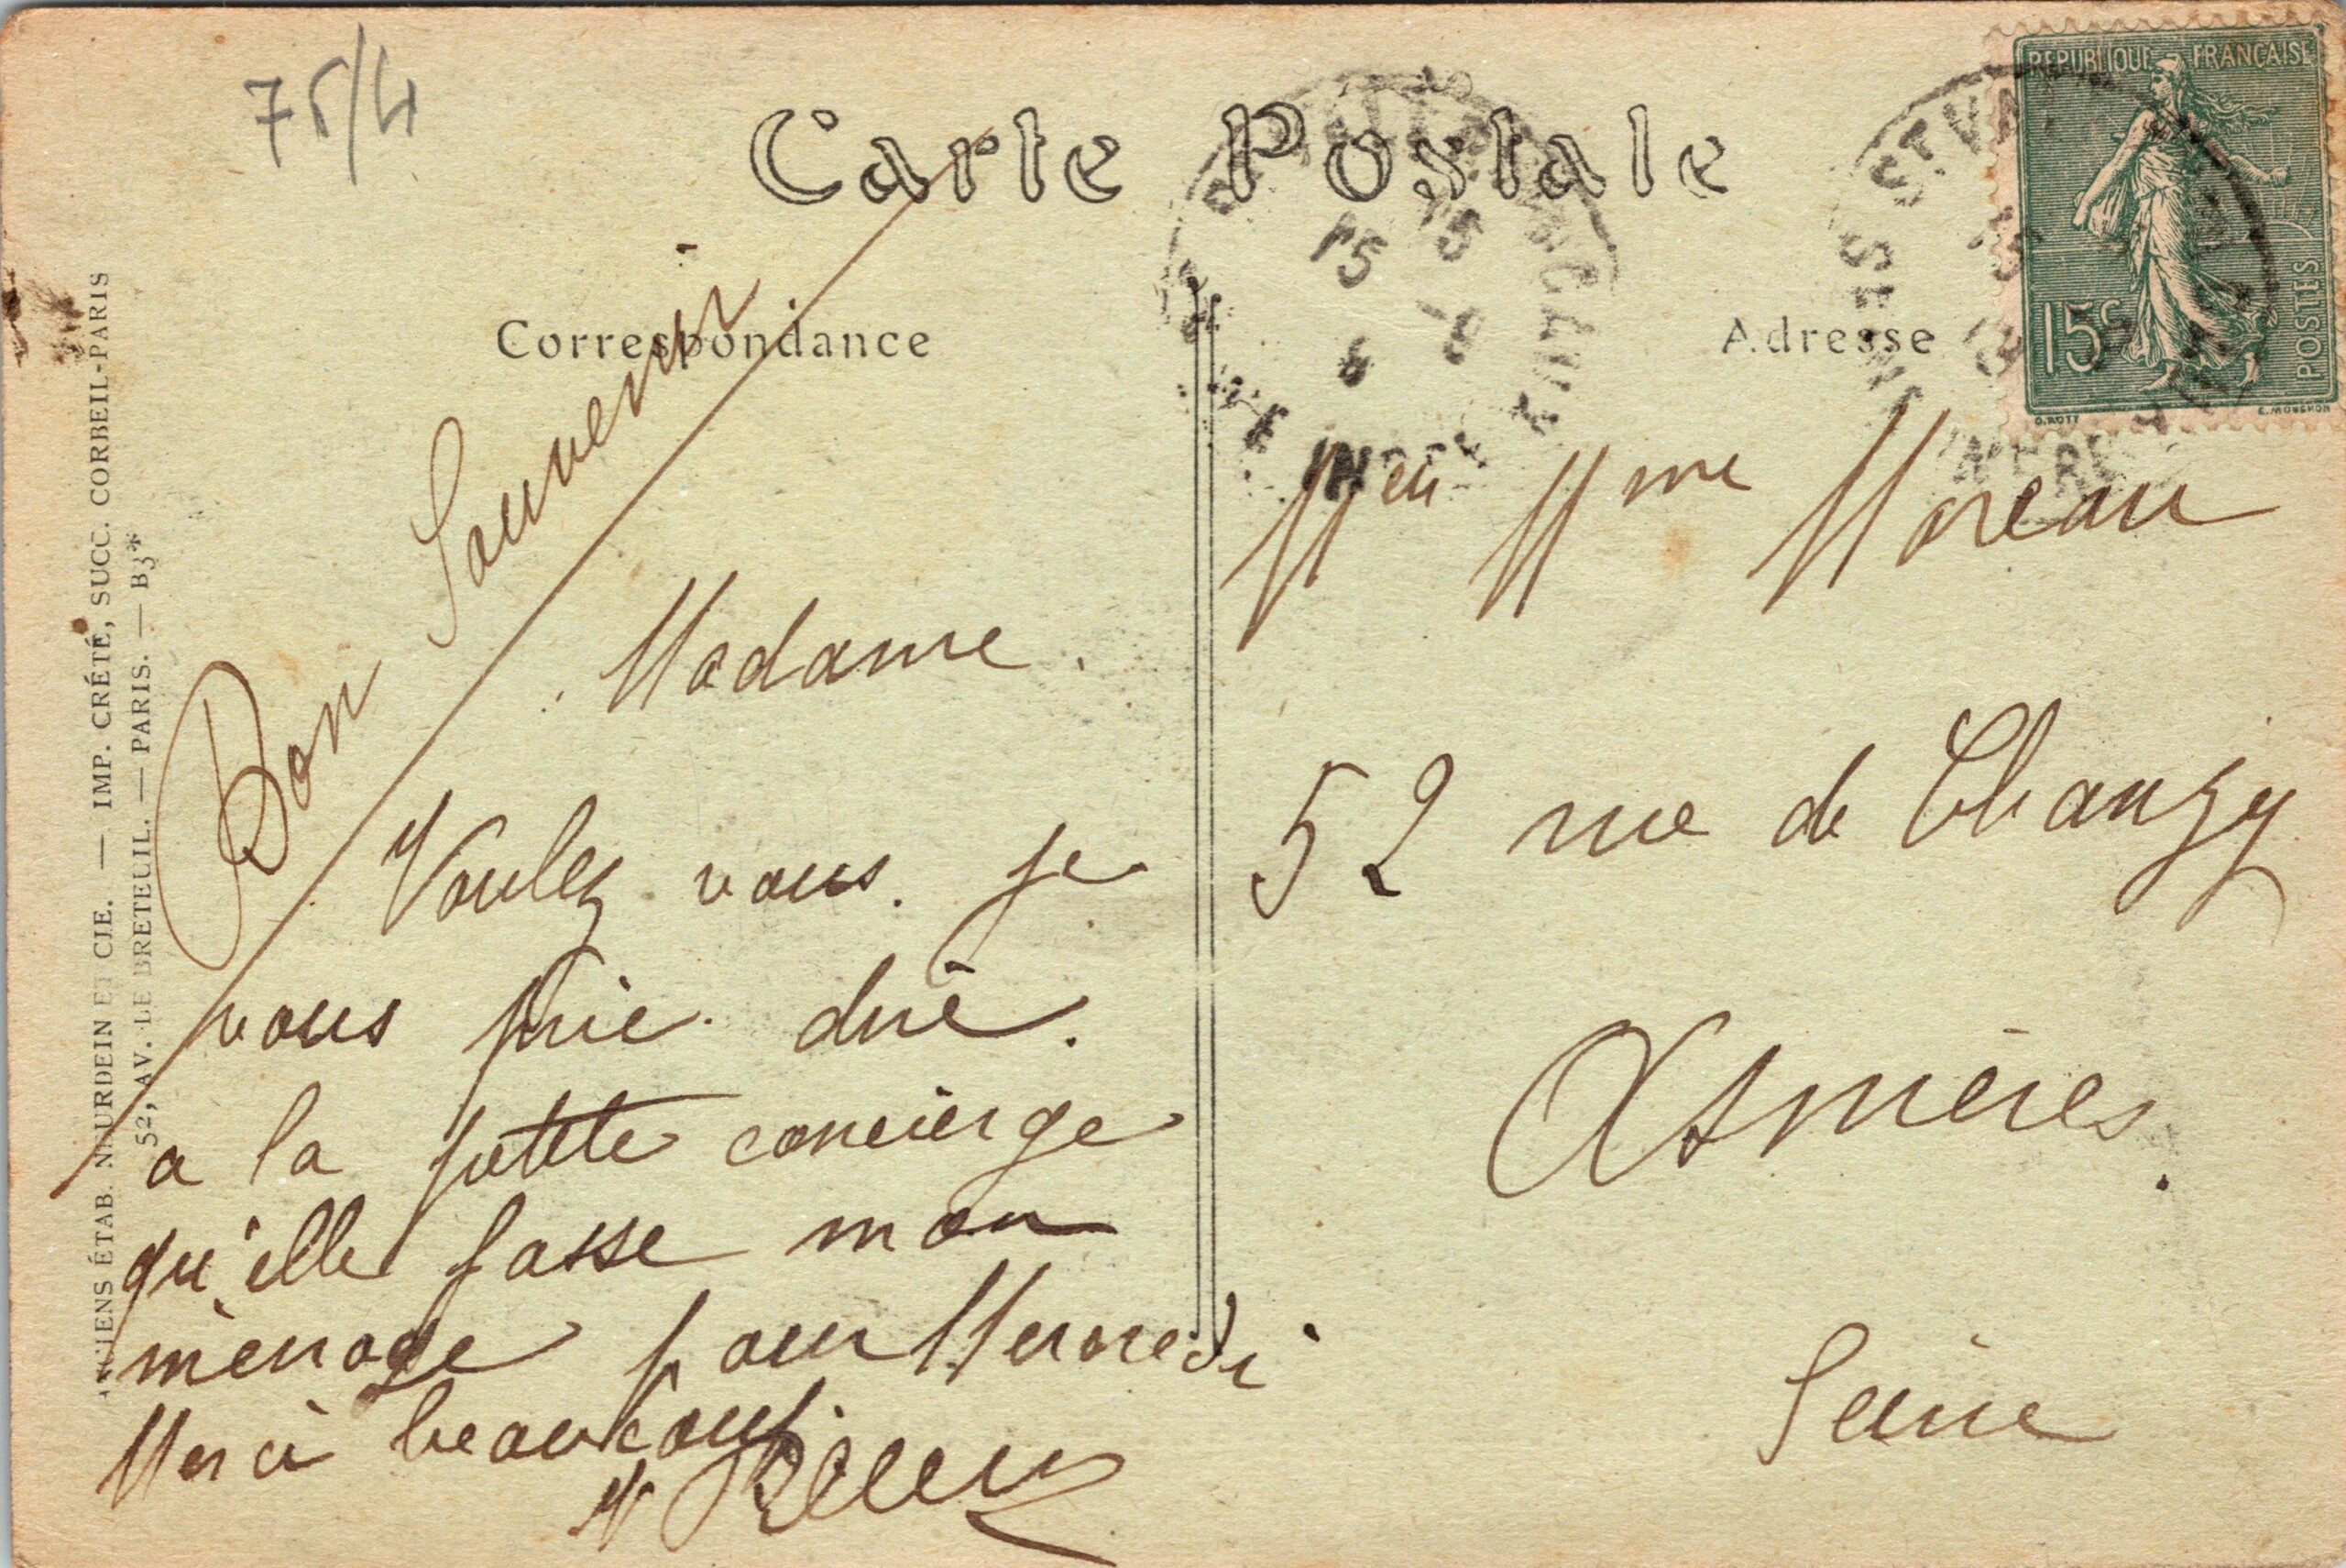 75/4
Carte Postale
REPUBLIQUE FRANÇAISE
15c
POSTES
O. ROTY
E. MOUCHON
Correspondance
Adresse
Bon Souvenir
Madame.
Voulez vous. je
vous prie. dire.
a la petite concierge
qu'elle fasse mon
ménage pour Mercredi
Merci beaucoup.
Mme Moreau
52 rue de Chanzy
Asnières.
Seine
ANCIENS ÉTAB. NEURDEIN ET CIE. — IMP. CRÉTÉ, SUCC. CORBEIL-PARIS
52, AV. DE BRETEUIL. — PARIS. — B3*